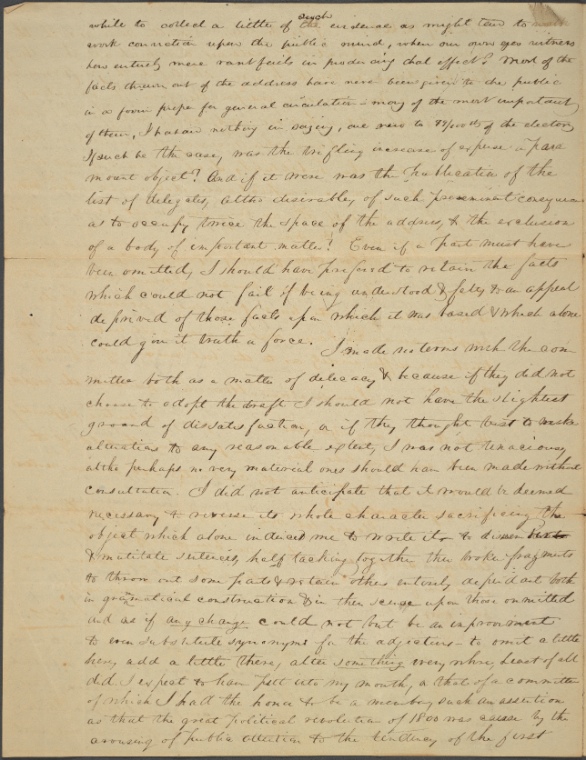 such
while to collect a little of the evidence as might tend to
work conviction upon the public mind, when our own eyes witness
how entirely mere rant fails in producing that effect? Most of the
facts thrown out of the address have never been given to the public
in a form proper for general circulation & many of the most important
of them, I hazard nothing in saying, are new to 99/100ds of the electors
If such be the case, was the trifling increase of expense a para
mount object? And if it were was the publication of the
list of delegates, altho desirable, of such preeminent consequence
as to occupy twice the space of the address, to the exclusion
of a body of important matter? Even if a part must have
been omitted, I should have preferred to retain the facts
which could not fail of being understood & felt, to an appeal
deprived of those facts upon which it was based & which alone
could give it truth & force. I made no terms with the com
mittee both as a matter of delicacy & because if they did not
choose to adopt the draft I should not have the slightest
ground of dissatisfaction, or if they thought best to make
alterations to any reasonable extent, I was not tenacious,
altho perhaps no very material ones should have been made without
consultation. I did not anticipate that it would be deemed
necessary to reverse its whole character sacrificing the
object which alone induced me to write it, & to
& mutilate sentences, half tacking together the broken fragments
to throw out some parts & retain others entirely dependent both
in gramatical construction & in their sense upon those ommitted
and as if any change could not but be an improvement
to even substitute synonyms for the adjectives - to omit a little
here, add a little there, alter something every where, least of all
did I expect to have put into my mouth, or that of a committee
of which I had the honor to be a member, such an assertion
as that the great political revolution of 1800 was caused by the
arousing of public attention to the tendency of the first